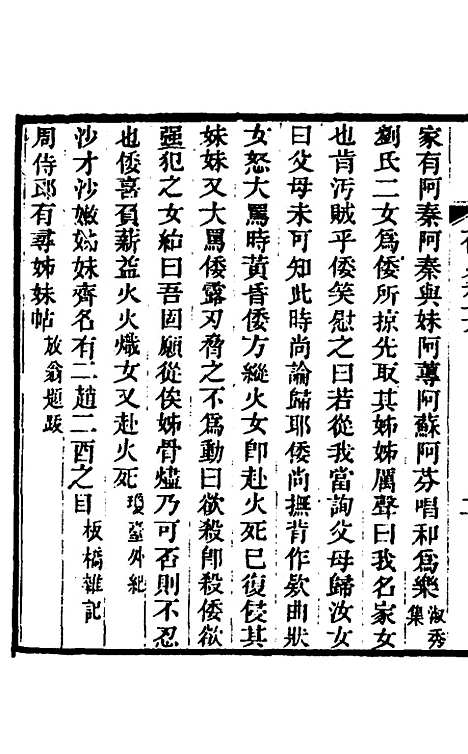 家有阿秦阿秦與妹阿蓴阿蘇阿芬唱和爲樂淑秀集
劉氏二女爲倭所掠先取其姊姊厲聲曰我名家女
也肯汚賊乎倭笑慰之曰若從我當詢父母歸汝女
曰父母未可知此時尚論歸耶倭尚撫背作欵曲狀
女怒大罵時黃昏倭方縱火女卽赴火死已復侵其
妹妹又大罵倭露刃脅之不爲動曰欲殺卽殺倭欲
强犯之女紿曰吾固願從俟姊骨燼乃可否則不忍
也倭喜負薪益火火熾女又赴火死瓊臺外紀
沙才沙嫩姊妹齊名有二趙二酉之目板橋雜記
周侍郎有尋姊妹帖放翁題跋